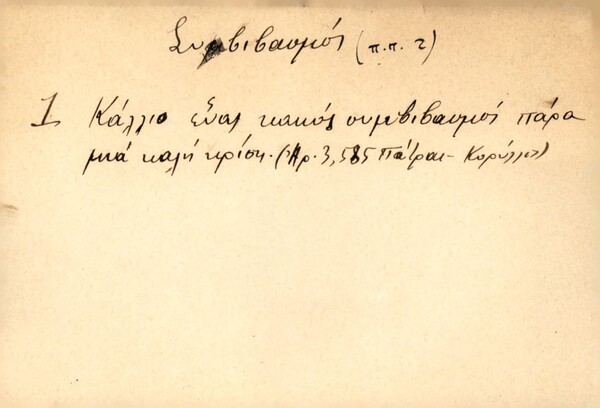 Συμβιβασμός (π.π. 2)
1 Κάλλιο ἕνας κακός συμβιβασμός πάρα
μιά καλή κρίση. (Ἀρ. 3,585 Πάτραι - Κορύλλος)